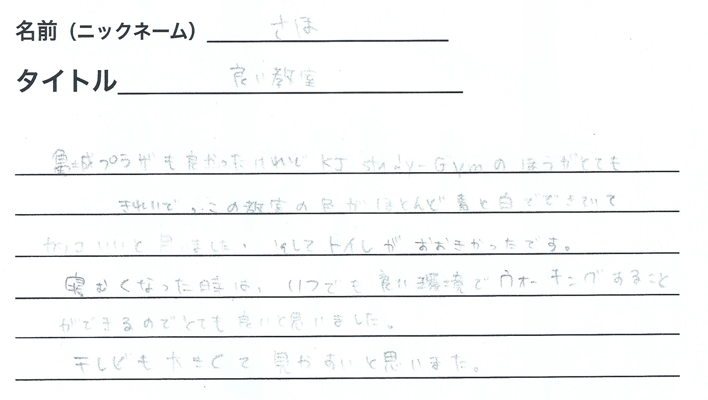 名前（ニックネーム） さほ
タイトル 良い教室
集成プラザも良かったけれど KJ study-Gymのほうがとても
きれいで、この教室の色がほとんど青と白でできていて
かっこいいと思ました。そしてトイレがおおきかったです。
寝むくなった時は、いつでも良い環境でウォーキングすること
ができるのでとても良いと思いました。
テレビも大きくて見やすいと思いまた。